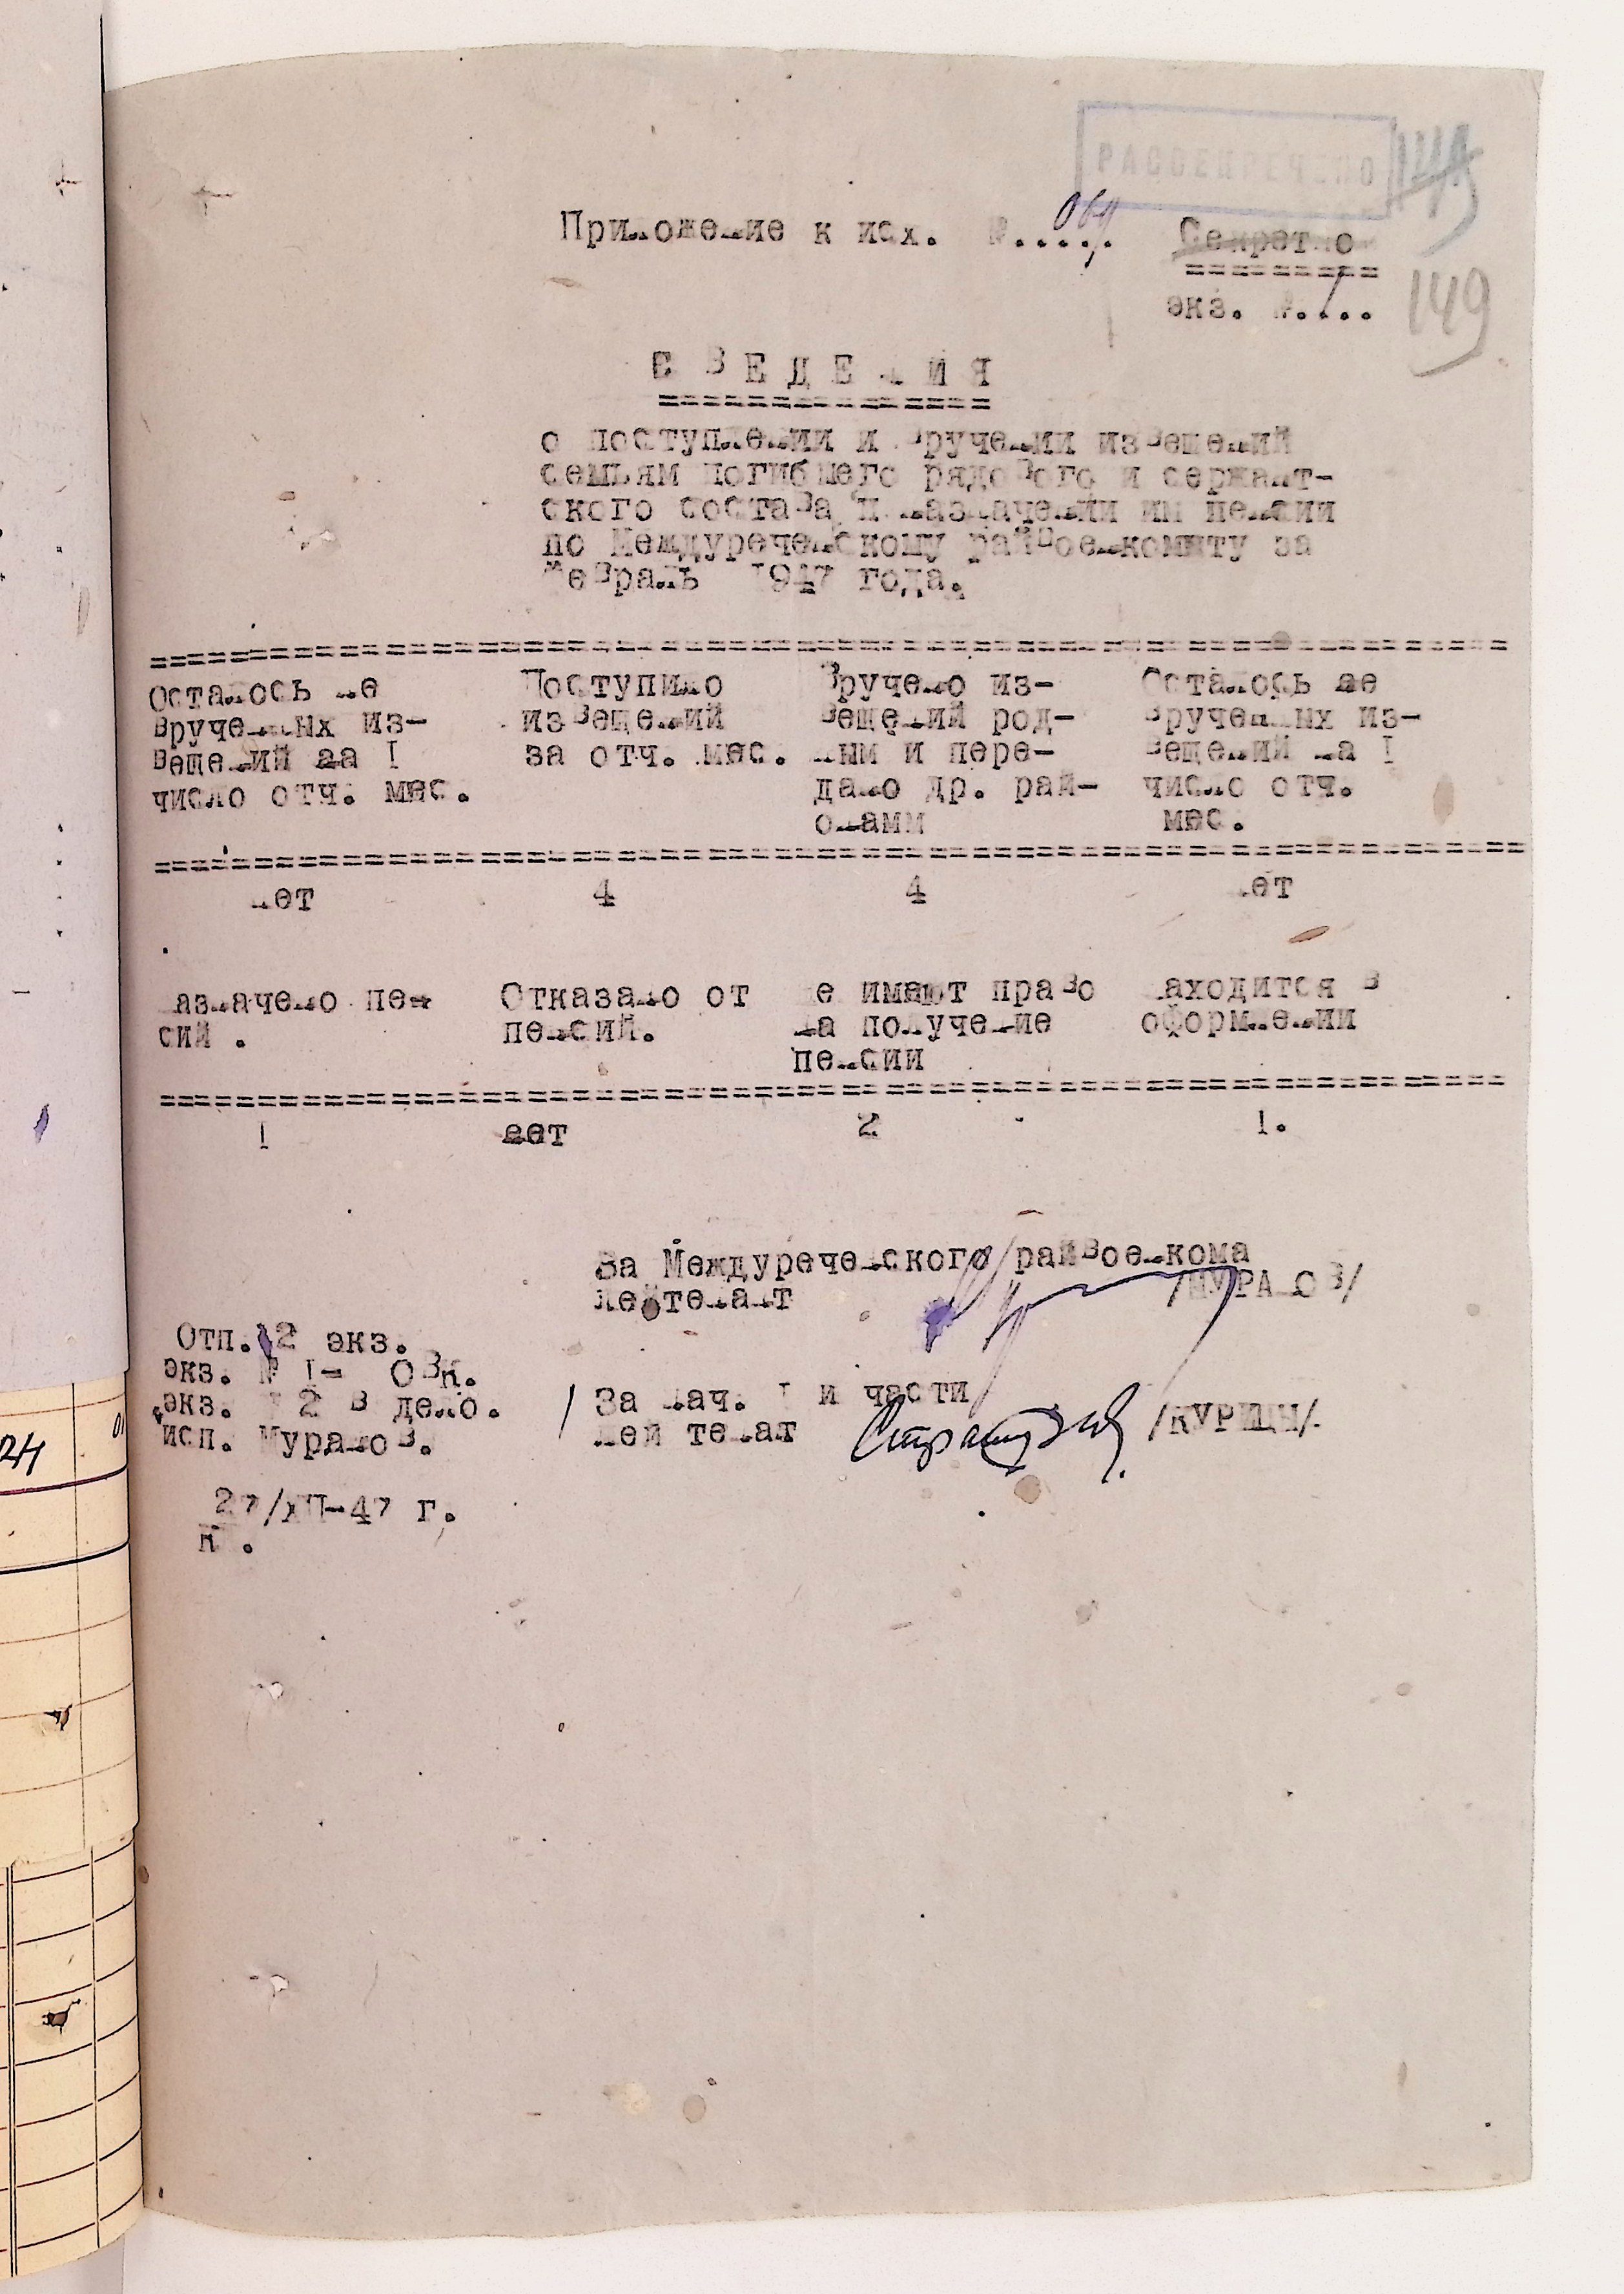 РАССЕКРЕЧЕНО
Приложение к исх. №..... Секретно
экз. №.1..
149
СВЕДЕНИЯ
о поступлении и вручении извещений
семьям погибшего рядового и сержант-
ского состава и назначении им пенсии
по Междуреченскому райвоенкомату за
февраль 1947 года.
Осталось не вручен​ных из-
вещений на I
число отч. мес.
Поступило
извещений
за отч. мес.
Вручено из-
вещений род-
ным и пере-
дано др. рай-
онами
Осталось не
врученных из-
вещений на I
число отч.
мес.
нет 4 4 нет
Назначено пен-
сий .
Отказано от
пенсий.
Не имеют право
на получение
пенсии
Находится в
оформлении
1 нет 2 1.
За Междуреченского райвоенкома
лейтенант /МУРАНОВ/
Отп. 2 экз.
экз. № I- ОВК.
экз. № 2 в дело.
исп. Муранов.
За нач. I и части
лейтенат /КУРИЦИН/.
27/ХП-47 г.